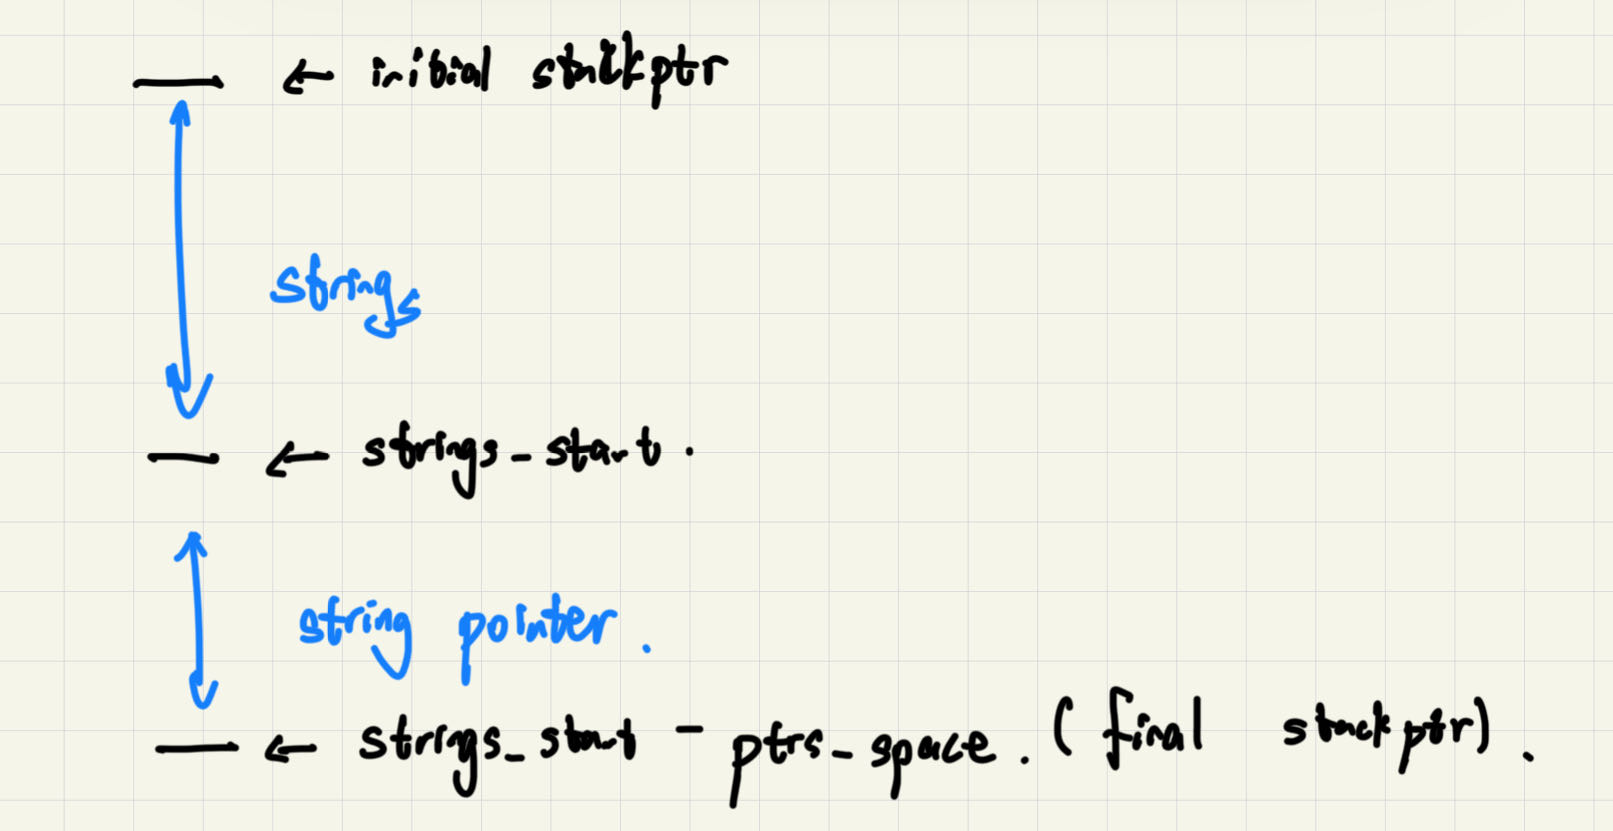 ← initial stackptr
strings
← strings_start.
string pointer.
← strings_start - ptrs_space. (final stackptr).